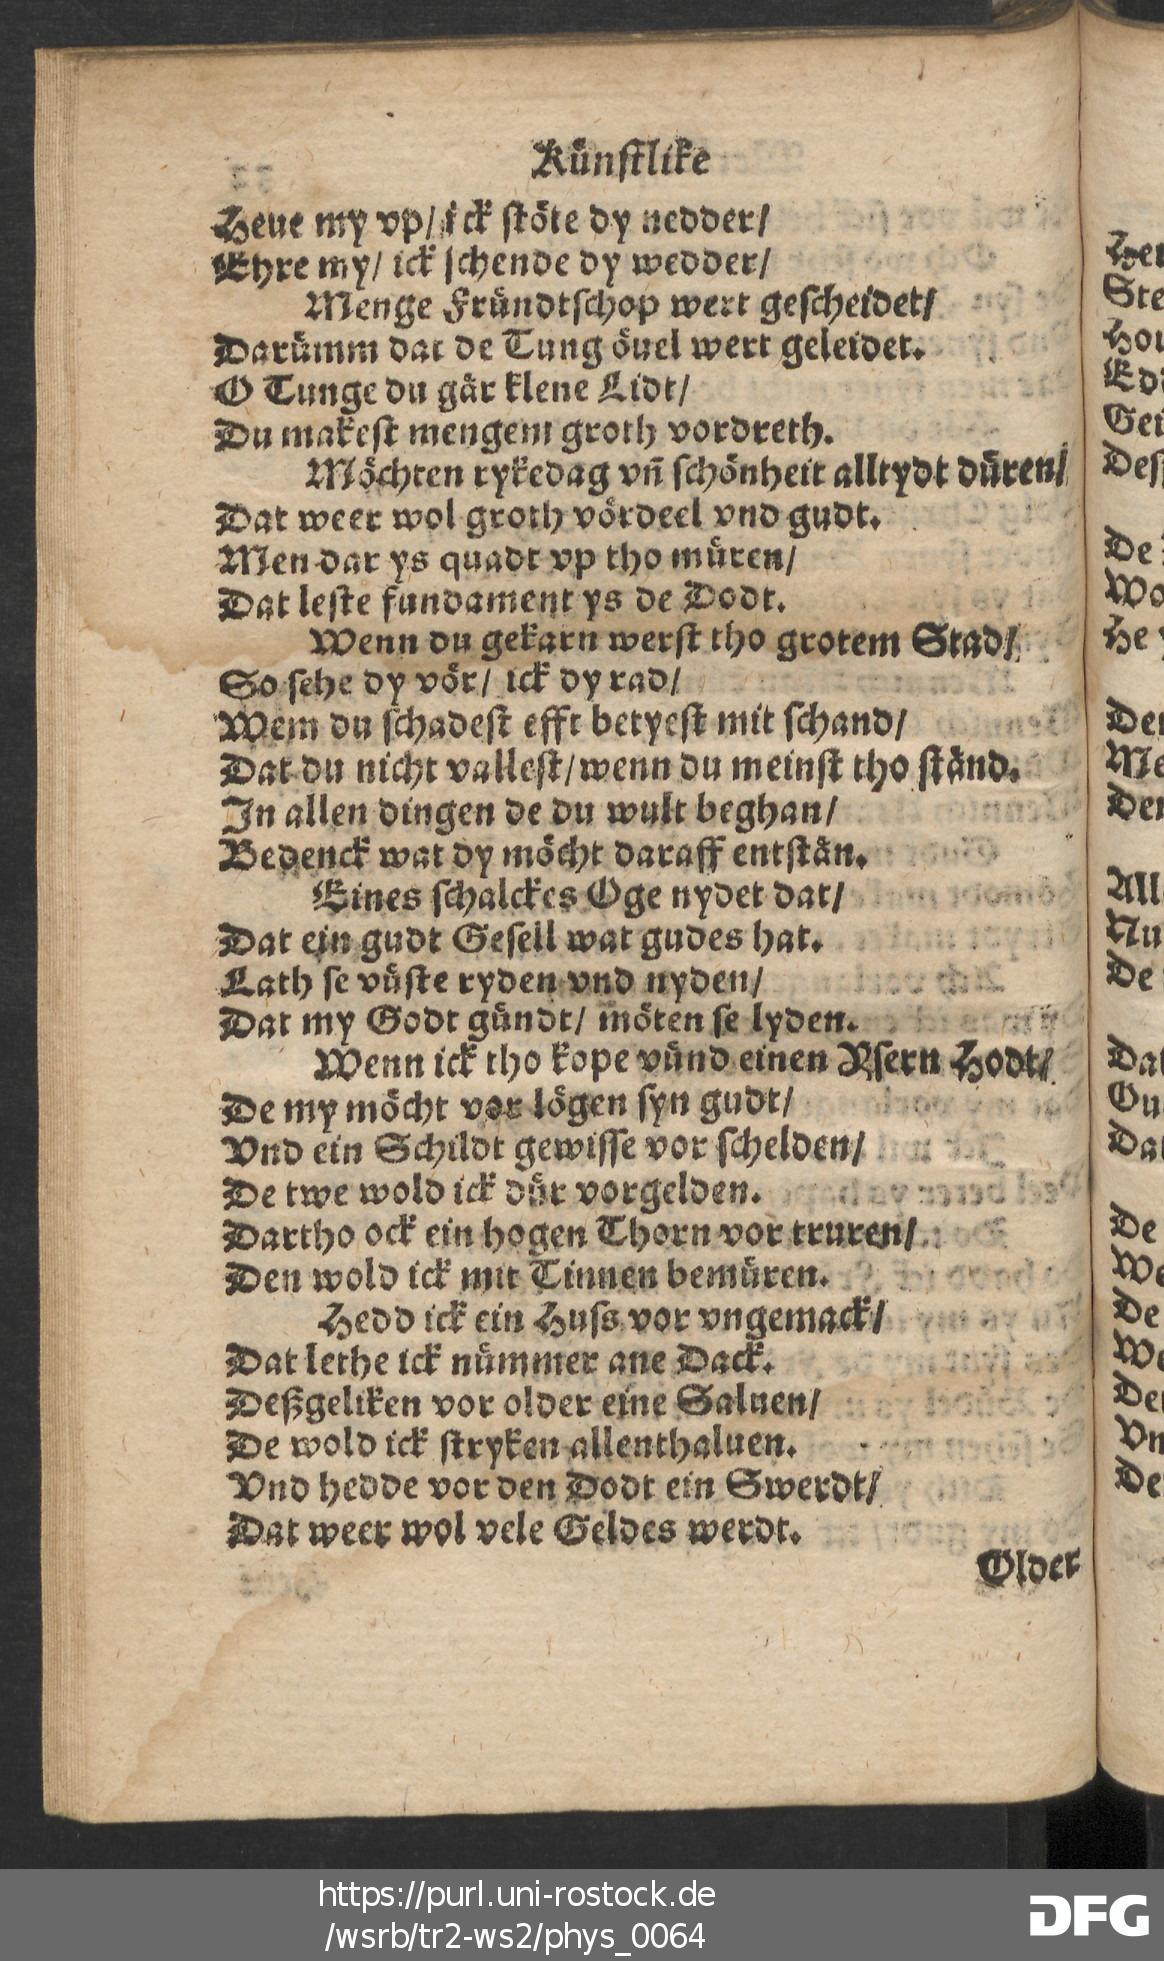 Künſtlike
Heue my vp/ ick ſtöte dy nedder/
Ehre my/ ick ſchende dy wedder/
Menge Fründtſchop wert geſcheidet/
Darümm dat de Tung öuel wert geleidet.
O Tunge du gär klene Lidt/
Du makeſt mengem groth vordreth.
Möchten rykedag vñ ſchönheit alltydt düren/
Dat weer wol groth vördeel vnd gudt.
Men dar ys quadt vp tho müren/
Dat leſte fundament ys de Dodt.
Wenn du gekarn werſt tho grotem Stad/
So ſehe dy vör/ ick dy rad/
Wem du ſchadeſt efft betyeſt mit ſchand/
Dat du nicht valleſt/ wenn du meinſt tho ſtänd.
In allen dingen de du wult beghan/
Bedenck wat dy möcht daraff entſtän.
Eines ſchalckes Oge nydet dat/
Dat ein gudt Geſell wat gudes hat.
Lath ſe vüſte ryden vnd nyden/
Dat my Godt gündt/ möten ſe lyden.
Wenn ick tho kope vünd einen Yſern Hodt/
De my möcht vor lögen ſyn gudt/
Vnd ein Schildt gewiſſe vor ſchelden/
De twe wold ick dür vorgelden.
Dartho ock ein hogen Thorn vor truren/
Den wold ick mit Tinnen bemüren.
Hedd ick ein Huſs vor vngemack/
Dat lethe ick nümmer ane Dack.
Deßgeliken vor older eine Saluen/
De wold ick ſtryken allenthaluen.
Vnd hedde vor den Dodt ein Swerdt/
Dat weer wol vele Geldes werdt.
Older
Ste
Edd
De
Wo
He
Der
Me
Der
All
Nu
De
Dat
Dat
De
We
De
We
Vn
De
https://purl.uni-rostock.de
/wsrb/tr2-ws2/phys_0064
DFG